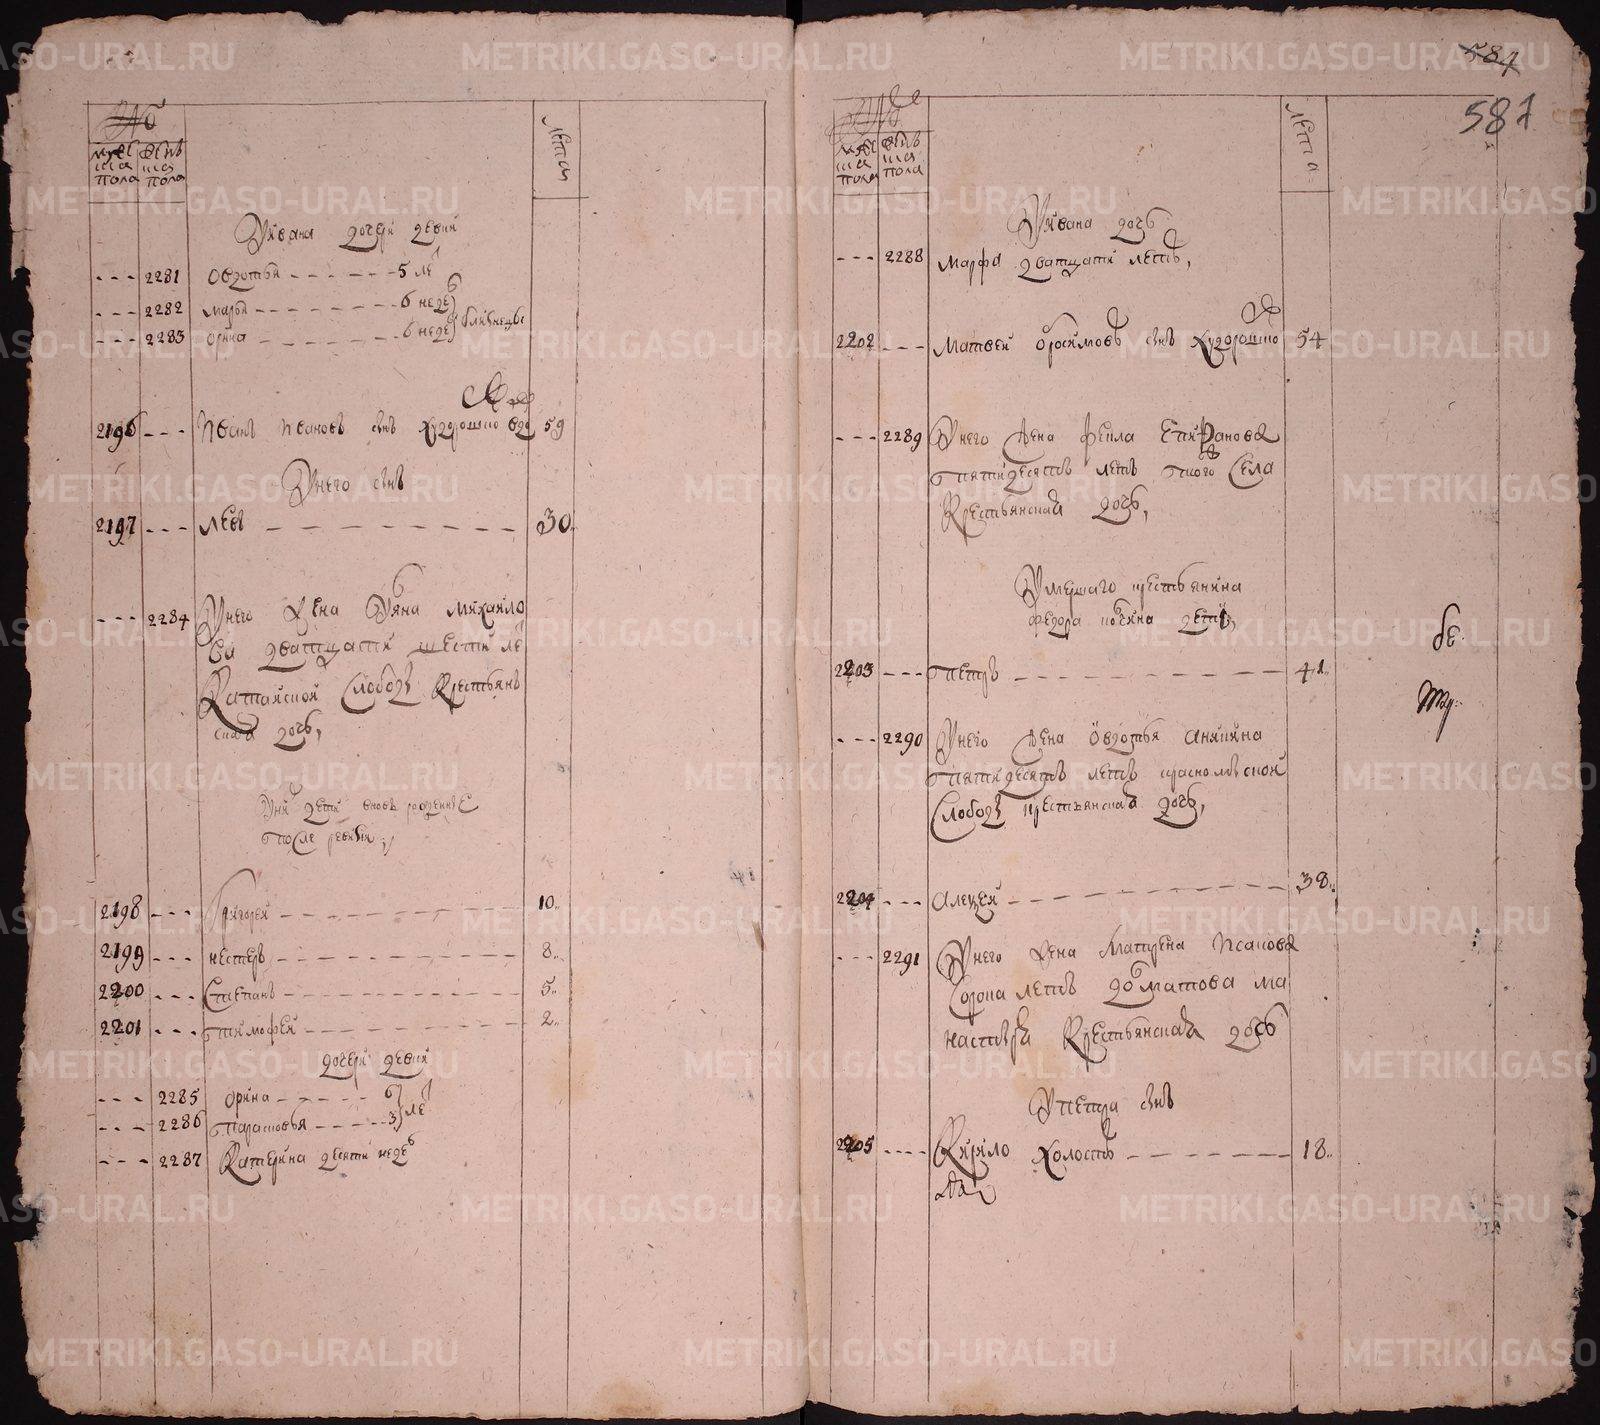 №
мужеска пола
женска пола
лета
У Ивана дочери девки
2281 Овдотья 5 ле
2282 Марья 6 неде
2283 Орина 6 неде близнецы
2196 Иван Иванов снъ Худорошко вдо 59
У него снъ
2197 Лев 30
2284 У него жена Ульяна Михайло
ва дватцати шести ле
Катайской слободы крестьянъ
ская дочь,
У них дети вновь рожденные
после ревизии,
2198 Григорей 10
2199 Нестеръ 8
2200 Степанъ 5
2201 Тимофей 2
дочери девки
2285 Орина 6
2286 Парасковья 3 ле
2287 Катерина десяти неде
584
581
№
мужеска пола
женска пола
лета
У Ивана дочь
2288 Марфа дватцати летъ,
2202 Матвей снъ 54
2289 У него жена Фекла Епифанова
пятидесятъ летъ того села
крестьянская дочь,
Умершаго крестьянина
Федора дети,
2203 Петръ 41
2290 У него жена Овдотья
пятидесятъ летъ
слободы крестьянская дочь,
2204 Алексей 38
2291 У него жена Матрена Исакова
сорока летъ Долматова мо
настыря крестьянская дочь
У Петра снъ
2205 Кирило холостъ 18
METRIKI.GASO-URAL.RU